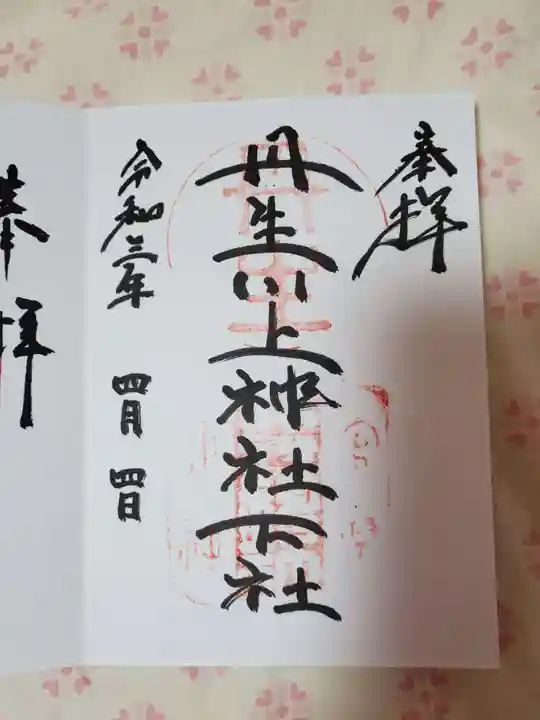 奉拝
丹生川上神社下社
令和三年 四月四日
奉拝